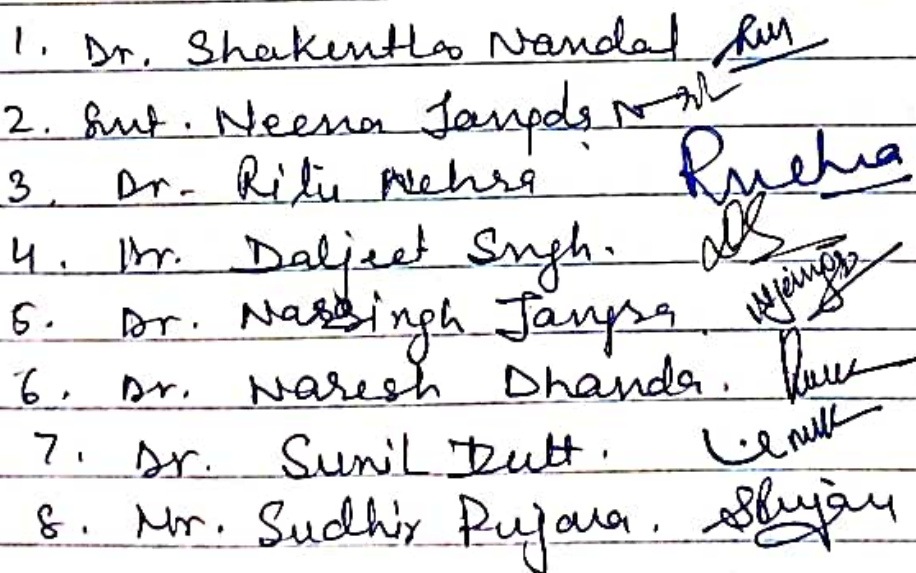 1. Dr. Shakuntla Nandal
2. Smt. Neena Jangda
3. Dr. Ritu Nehra Rnehra
4. Dr. Daljeet Singh.
5. Dr. Narsingh Jangra.
6. Dr. Naresh Dhanda.
7. Dr. Sunil Dutt.
8. Mr. Sudhir Pujara.